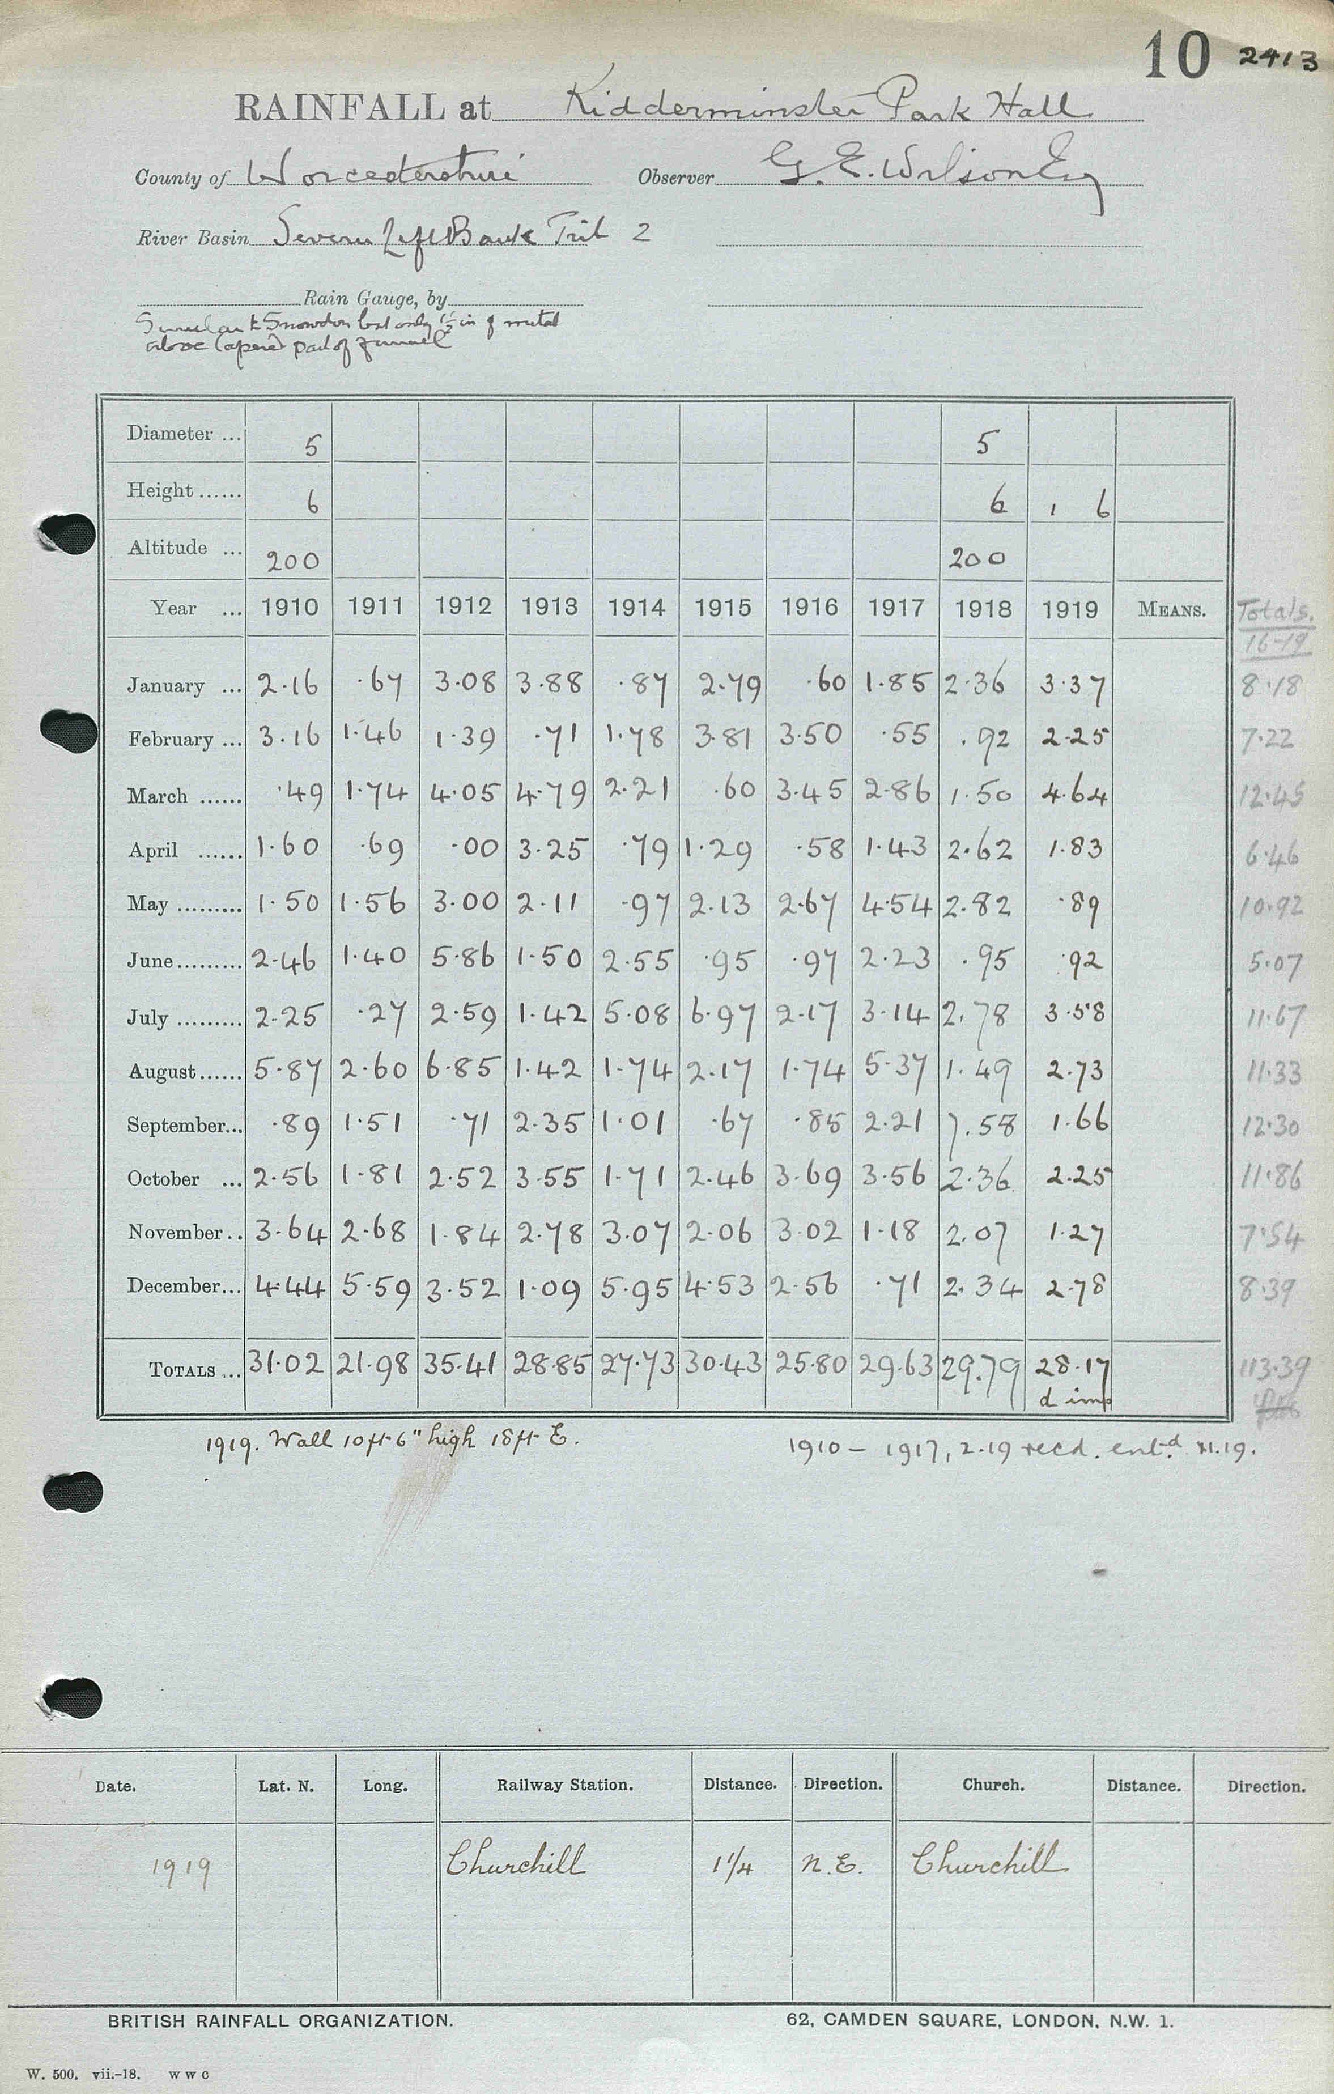 10 2413
RAINFALL at Kidderminster Park Hall
County of Worcestershire Observer G. E. Wilson Esq
River Basin Severn Left Bank Trib 2
Rain Gauge, by
Similar to Snowdon but only 1½ in of metal
above taper part of funnel
Diameter ... 5 5
Height ...... 6 6 1 6
Altitude ... 200 200
Year ... 1910 1911 1912 1913 1914 1915 1916 1917 1918 1919 MEANS. Totals.
16-19
January ... 2.16 .67 3.08 3.88 .87 2.79 .60 1.85 2.36 3.37 8.18
February ... 3.16 1.46 1.39 .71 1.78 3.81 3.50 .55 .92 2.25 7.22
March ...... .49 1.74 4.05 4.79 2.21 .60 3.45 2.86 1.50 4.64 12.45
April ...... 1.60 .69 .00 3.25 .79 1.29 .58 1.43 2.62 1.83 6.46
May ......... 1.50 1.56 3.00 2.11 .97 2.13 2.67 4.54 2.82 .89 10.92
June ......... 2.46 1.40 5.86 1.50 2.55 .95 .97 2.23 .95 .92 5.07
July ......... 2.25 .27 2.59 1.42 5.08 6.97 2.17 3.14 2.78 3.58 11.67
August ...... 5.87 2.60 6.85 1.42 1.74 2.17 1.74 5.37 1.49 2.73 11.33
September... .89 1.51 .71 2.35 1.01 .67 .85 2.21 7.58 1.66 12.30
October ... 2.56 1.81 2.52 3.55 1.71 2.46 3.69 3.56 2.36 2.25 11.86
November .. 3.64 2.68 1.84 2.78 3.07 2.06 3.02 1.18 2.07 1.27 7.54
December... 4.44 5.59 3.52 1.09 5.95 4.53 2.56 .71 2.34 2.78 8.39
TOTALS ... 31.02 21.98 35.41 28.85 27.73 30.43 25.80 29.63 29.79 28.17 113.39
d imp
1919. Wall 10ft 6" high 18ft E. 1910 - 1917, 2.19 recd. entd XI.19.
Date. Lat. N. Long. Railway Station. Distance. Direction. Church. Distance. Direction.
1919 Churchill 1¼ N.E. Churchill
BRITISH RAINFALL ORGANIZATION. 62, CAMDEN SQUARE, LONDON, N.W. 1.
W. 500. vii.-18. W W C